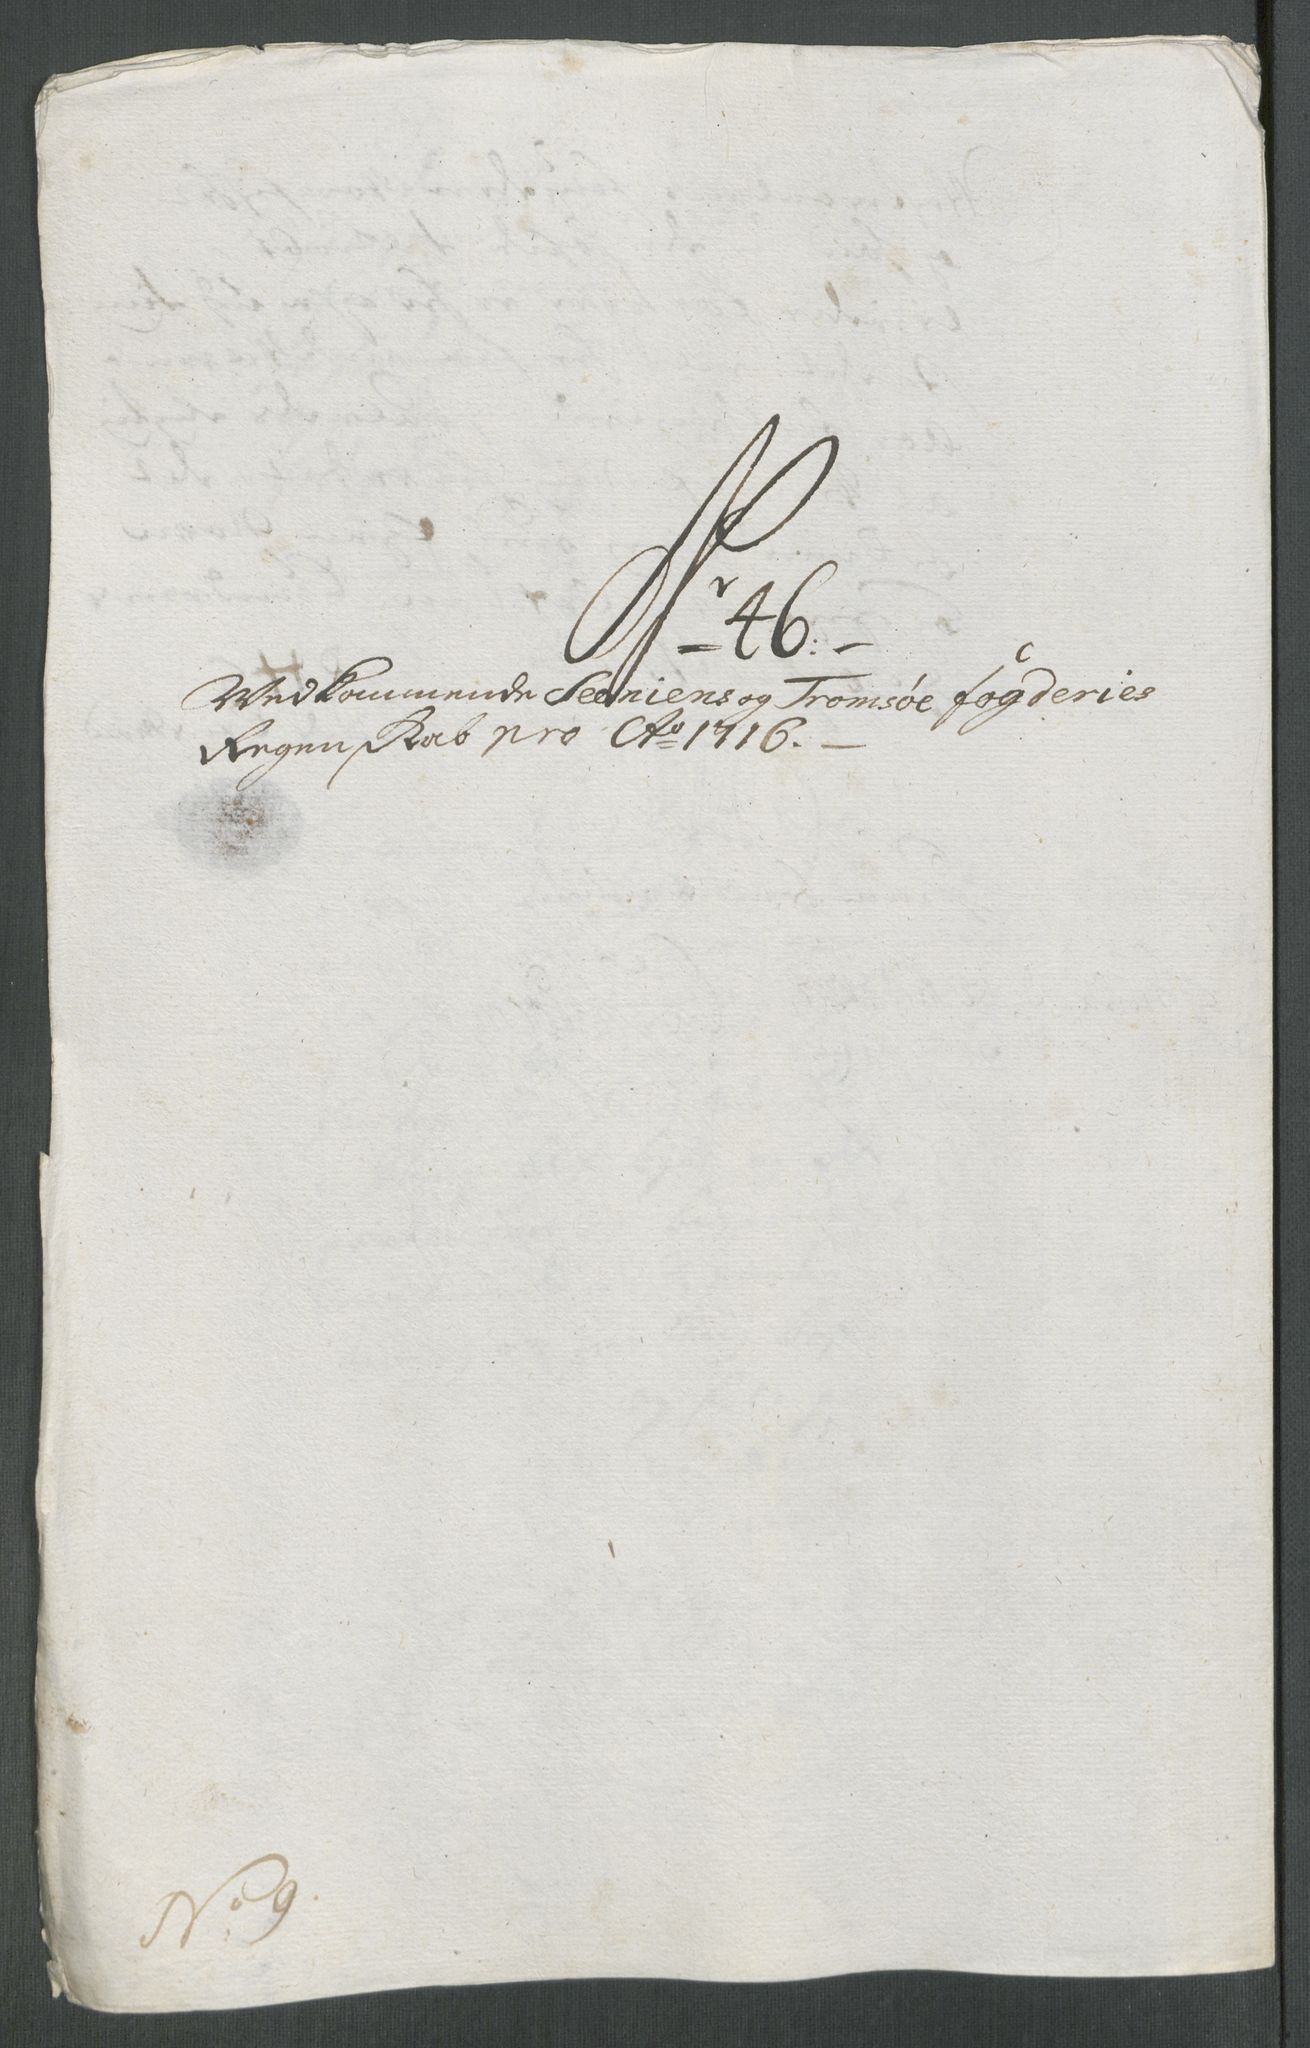 Nr 46.
Wedkommende Senniens og Tromsøe fogderies
Regenskab pro Ao 1716.
No 9.